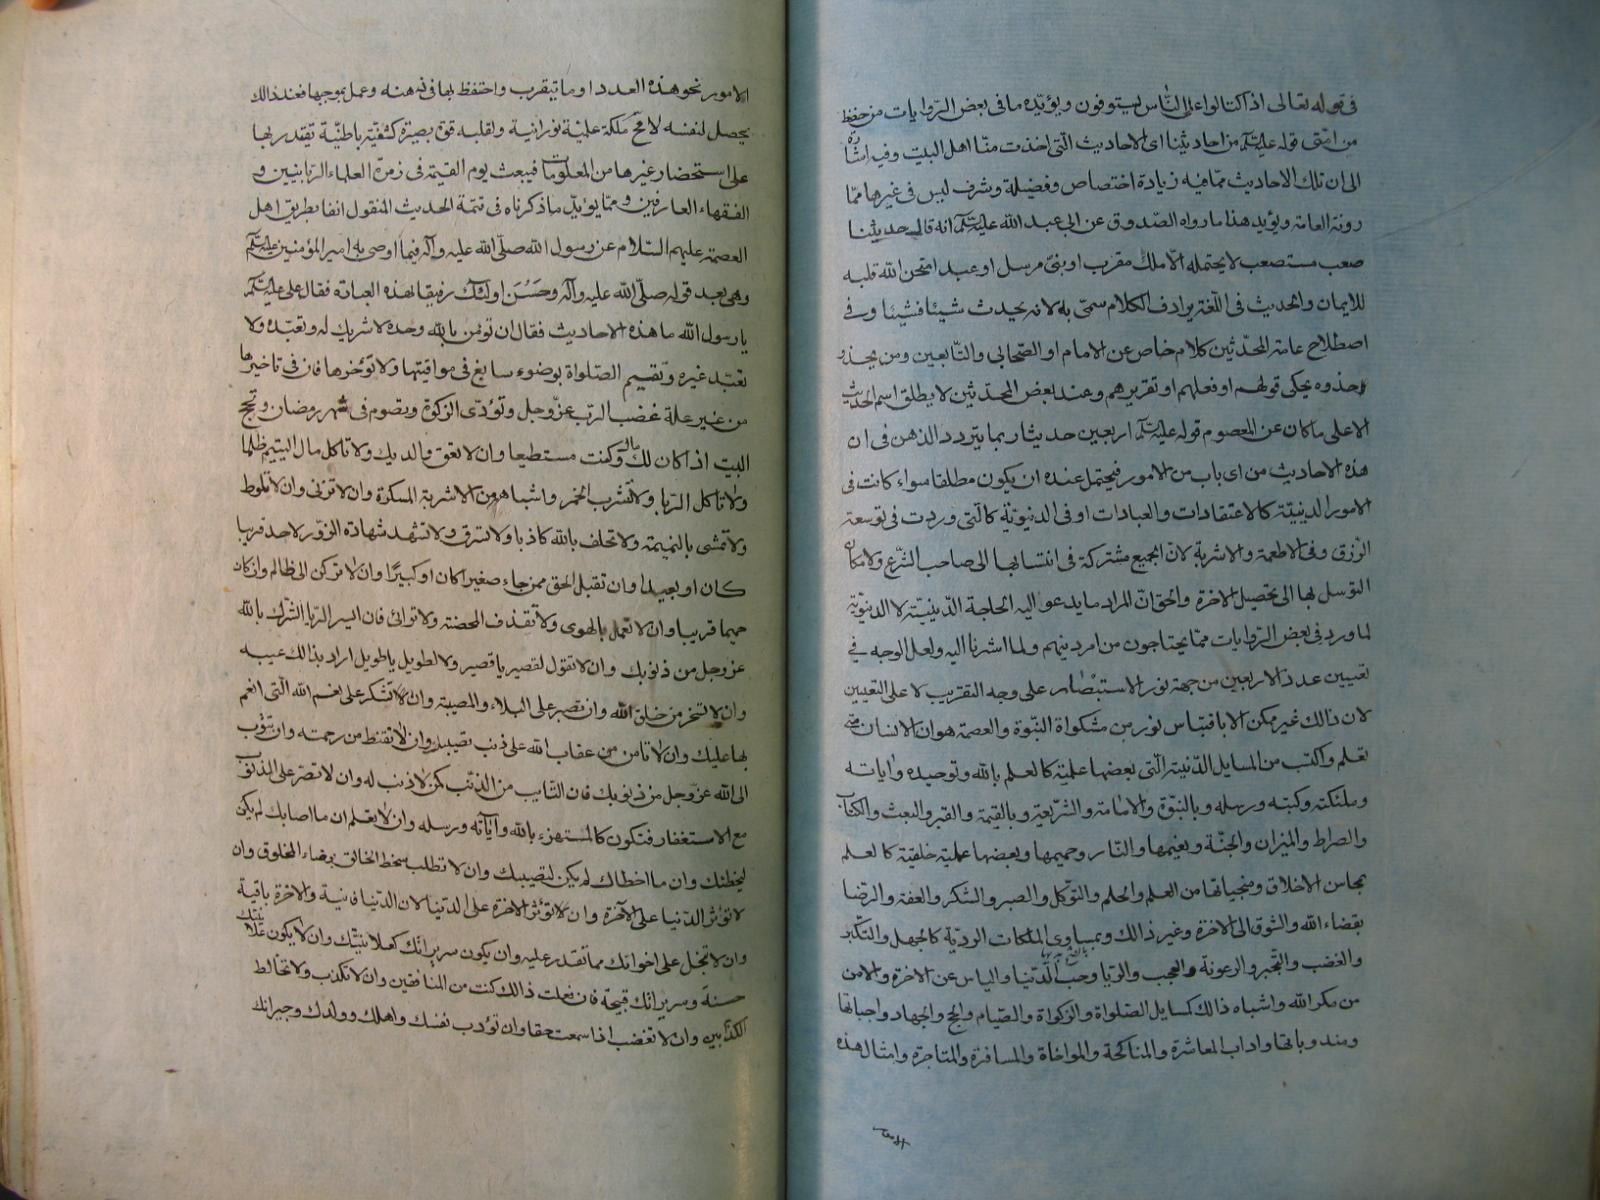 في قوله تعالى اذا اكتالوا على الناس يستوفون ويؤيّده ما في بعض الرّوايات من حفظ
من امّتى قوله عليه السلم من احاديثنا اى الاحاديث الّتى اخذت منّا اهل البيت وفيه اشارة
الى ان تلك الاحاديث ممّا فيه زيادة اختصاص وفضيلة وشرف ليس فى غيرها ممّا
روته العامة ويؤيد هذا ما رواه الصّدوق عن ابى عبد الله عليه السلم انه قال حديثنا
صعب مستصعب لا يحتمله الّا ملك مقرب او بنىّ مرسل او عبد امتحن الله قلبه
للايمان والحديث فى اللّغة يرادف الكلام سمّى به لانه يحدث شيئا فشيئا وفى
اصطلاح عامة المحدّثين كلام خاص عن الامام او الصّحابى والتّابعين ومن يحذو
حذوه يحكى قولهم او فعلهم او تقريرهم وعند بعض المحدّثين لا يطلق اسم الحديث
الا على ما كان عن المعصوم قوله عليه السلم اربعين حديثا ربما يتردد الذهن فى ان
هذه الاحاديث من اى باب من الامور فيحتمل عنده ان يكون مطلقا سواء كانت فى
الامور الدينيّة كالاعتقادات والعبادات او فى الدنيويّة كالّتى وردت فى توسعة
الرّزق وفى الاطعمة والاشربة لانّ الجميع مشتركة فى انتسابها الى صاحب الشّرع ولامكان
التوسل بها الى تحصيل الاخرة والحق انّ المراد ما يدعو اليه الحاجة الدّينيّة لا الدنيويّة
لما ورد فى بعض الرّوايات ممّا يحتاجون من امر دينهم ولما اشرنا اليه ولعل الوجه في
تعيين عدد الاربعين من جهة نور الاستبصار على وجه التقريب لا على التعيين
لان ذالك غير ممكن الا باقتباس نور من مشكواة النّبوة والعصمة هو ان الانسان متى
تعلم واكتسب من المسايل الدّينية الّتى بعضها علميّة كالعلم بالله وتوحيده واياته
وملئكته وكتبه ورسله وبالنبوّة والامامة والشّريعة وبالقيمة والقبر والبعث والكتاب
والصراط والميزان والجنّة ونعيمها والنّار وحميمها وبعضها عمليّة خلقيّة كالعلم
بمحاسن الاخلاق ومنجياتها من العلم والحلم والتوّكل والصبر والشّكر والعفة والرّضا
بقضاء الله والشّوق الى الاخرة وغير ذالك وبمساوى الملكات الرديّة كالجهل والتكبّر
والغضب والتّجبر والرّعونة والعجب والريا وحبّ الدّنيا والياس عن الاخرة والامن
من مكر الله واشباه ذالك كمسايل الصّلواة والزكواة والصّيام والحج والجهاد واجباتها
ومندوباتها واداب المعاشرة والمناكحة والمواخاة والمسافرة والمتاجرة وامثال هذه
الامور
الامور نحو هذه العدد او ما يقرب واحتفظ بها فى ذهنه وعمل بموجبها فعند ذالك
يحصل لنفسه لا مح ملكة علميّة نورانية ولقلبه قوّة بصيرة كشفيّة باطنيّة تقتدر بها
على استحضار غيرها من المعلومات فيبعث يوم القيمة فى زمرة العلماء الرّبانيّين و
الفقهاء العارفين وممّا يؤيّد ما ذكرناه فى تتمة الحديث المنقول انفا بطريق اهل
العصمة عليهم السّلام عن رسول الله صلّى الله عليه وآله فيما اوصى به امير المؤمنين عليه السلم
وهى بعد قوله صلّى الله عليه وآله وحَسُنَ اولئك رفيقا بهذه العبارة فقال على عليه السلم
يا رسول الله ما هذه الاحاديث فقال ان تؤمن بالله وحده لا شريك له وتعبّده ولا
تعبّد غيره وتقيم الصّلواة بوضوء سابغ فى مواقيتها ولا تؤخرها فان فى تاخيرها
من غير علة غضب الربّ عزّ وجل وتؤدّى الزكوة وتصوم فى شهر رمضان وتحج
البيت اذا كان لك مال وكنت مستطيعا وان لا تعق والديك ولا تاكل مال اليتيم ظلما
ولا تاكل الرّبا ولا تشرب الخمر واشباهه من الاشربة المسكرة وان لا تزنى وان لا تلوط
ولا تمشى بالنميمة ولا تحلف بالله كاذبا ولا تسرق ولا تشهد شهادة الزوّر لاحد قريبا
كان او بعيدا وان تقبل الحق ممن جاء صغيرا كان او كبيرًا وان لا تركن الى ظالم وان كان
حميما قريبا وان لا تعمل بالهوى ولا تقذف المحصنة ولا ترائى فان ايسر الرّيا الشّرك بالله
عز وجل من ذنوبك وان لا تقول لقصير يا قصير ولا لطويل يا طويل اراد بذالك عيبه
وان لا تسخر من خلق الله وان تصبر على البلاء والمصيبة وان لا تشكر على نعم الله الّتى انعم
بها عليك وان لا تامن من عقاب الله على ذنب تصيبه وان لا تقنط من رحمته وان تتوب
الى الله عزّ وجل من ذنوبك فان التّايب من الذنب كمن لا ذنب له وان لا تصرّ على الذنب
مع الاستغفار فتكون كالمستهزء بالله وآياته ورسله وان لا تعلم ان ما اصابك لم يكن
ليخطئك وان ما اخطاك لم يكن ليصيبك وان لا تطلب سخط الخالق برضاء المخلوق وان
لا تؤثر الدّنيا على الآخرة وان لا تؤثر الاخرة على الدّنيا لان الدّنيا فانية والاخرة باقية
وان لا تبخل على اخوانك مما تقدر عليه وان يكون سريرتك كعلانيتّك وان لا يكون علانيتك
حسنة وسريرتك قبيحة فان فعلت ذالك كنت من المنافقين وان لا تكذب ولا تخالط
الكذّابين وان لا تغضب اذا سمعت حقا وان تؤدب نفسك واهلك وولدك وجيرانك